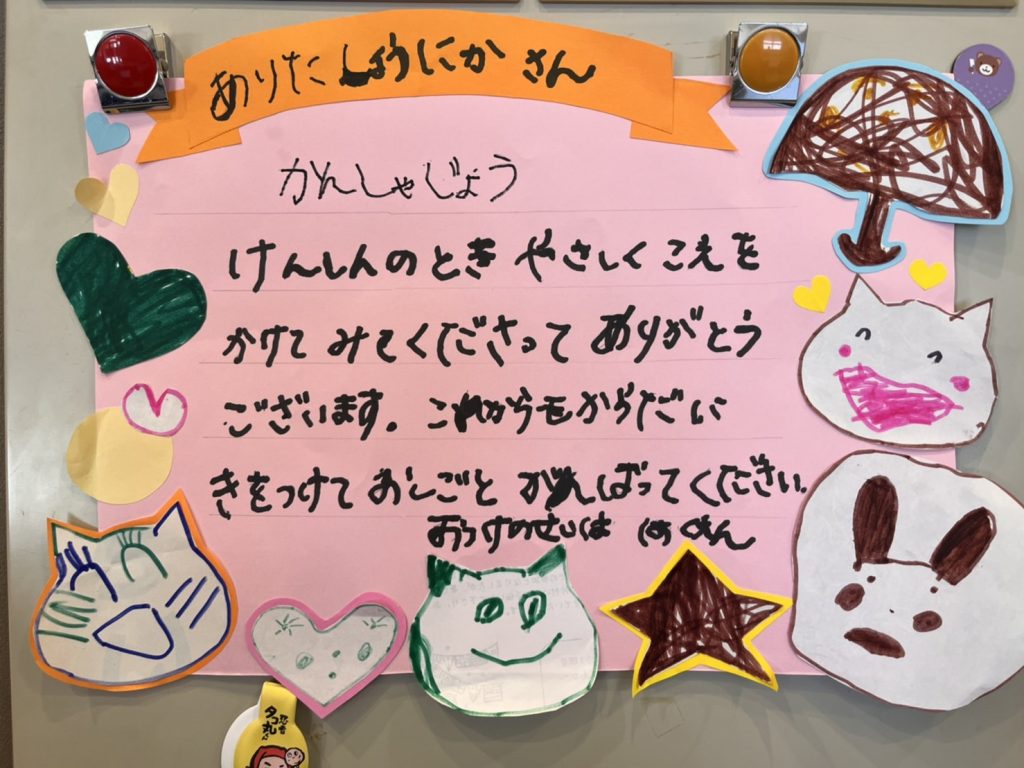 ありたしょうにかさん
かんしゃじょう
けんしんのとき やさしく こえを
かけて みてくださって ありがとう
ございます。これからもからだに
きをつけて おしごと がんばってください。